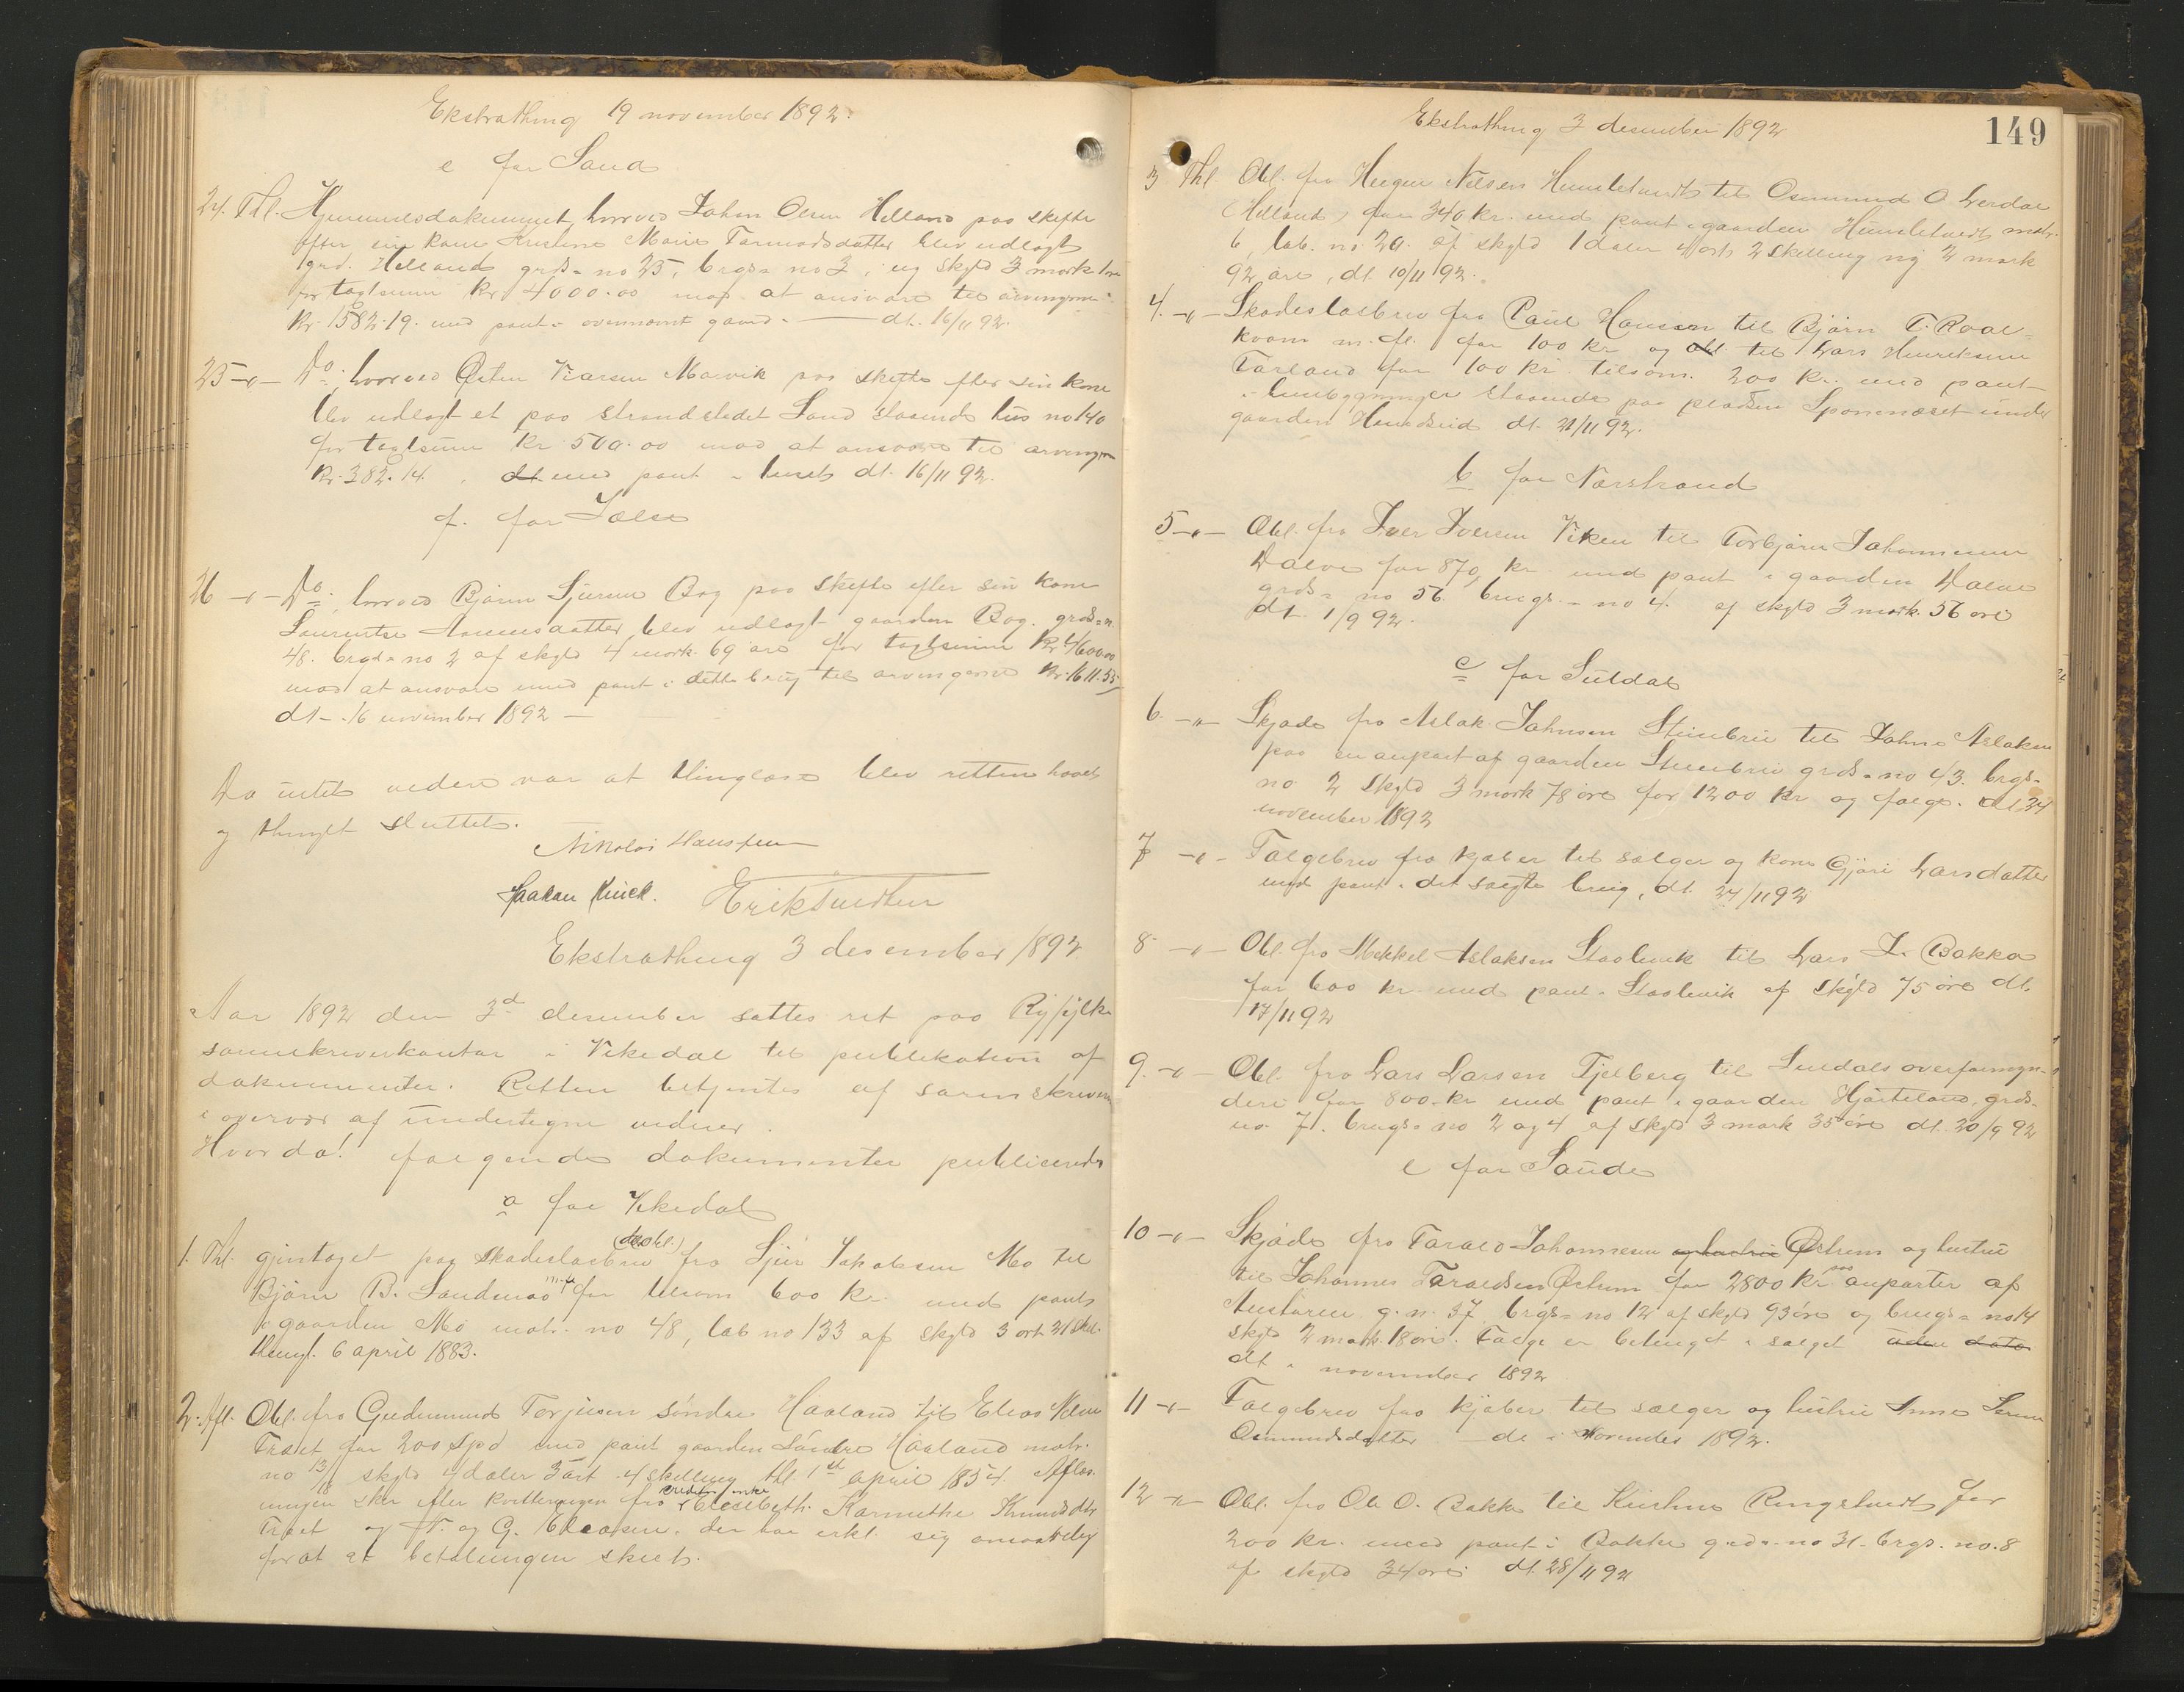 Ekstrathing 19 november 1892.
e for Sand
24. Thl. Hjemmelsdokument hvorved Johan Olsen Helland paa skefte
efter sin kone Kristine Marie Tormodsdatter blev udlagt
grd. Helland grds= no 25, brgs= no 3, ny skyld 3 mark 1 øre
for taxtsum kr 4000.00 mod at ansvare til arvingerne
kr. 1582.19. med pant i ovennævnt gaard. — dt. 16/11 92.
25 -"- Do. hvorved Østen Marvik paa skefte efter sin kone
blev udlagt et paa strandstedet Sand staaende hus no 140
for taxtsum kr 500.00 mod at ansvare til arvingerne
kr. 382.14. dt. med pant i huset dt. 16/11 92.
f. for Jælse
26 -"- Do. hvorved Bjørn Sjursen Bog paa skefte efter sin kone
blev udlagt gaarden Bog. grds= n.
48. brgs= no 2 af skyld 4 mark 69 øre for taxtsum kr 4600.00
mod at ansvare med pant i dette brug til arvingerne kr. 1611.55
dt - 16 november 1892 —
Da intet videre var at thinglæse blev retten hævet
og thinget sluttet.
Nikolai Hansen
Haakan Kinck. Erik Tuedten
Ekstrathing 3 desember 1892.
Aar 1892 den 3d desember sattes ret paa Ryfylke
sorenskriverkontor i Vikedal til publikation af
dokumenter. Retten betjentes af sorenskriveren
i overvær af undertegnede vidner.
Hvorda! følgende dokumenter publiceredes
a for Vikedal
1. Thl. gjentaget paa skadesløsbrev fra Sjur Jakobsen Mo til
Bjørn B. Sandenaa m. fl. for tilsam 600 kr med pant
i gaarden Mo matr. no 48, løb no 133 af skyld 3 ort 21 skil.
thingl. 6 april 1883.
2. Afl. Obl. fra Gudmund Torjusen søndre Haaland til Elias
Træet for 200 Spd med pant gaarden Søndre Haaland matr.
no 13 skyld 4 daler 3 ort 4 skelling thl. 1st april 1854. Afløs-
ningen sker efter kvitteringen fra kreditors enke Karmethe Knudsdtr
Træet og N. og G. Eliasen. der har erkl. sig ansvarlig
for at at betalingen skeet.
Ekstrathing 3 desember 1892
149
3 Thl. Obl. fra Helgen Nilsen Humletvedt til Osmund O. Lerdal
(Helland) for 340 kr. med pant i gaarden Humletvedt matr.
6, løb. no 20. af skyld 1 daler ort 2 skelling ny 2 mark
92 øre, dt. 10/11 92.
4. -"- Skadesløsbrev fra Paul Hansen til Bjørn T. Roal-
kvam m. fl. for 100 kr og obl. til Lars Henriksen
Førland for 100 kr tilsam. 200 kr. med pant
i husbygninger staaende paa pladsen Sponenæset under
gaarden dt. 21/11 92.
b for Nærstrand
5 -"- Obl. fra Iver Iversen Viken til Torbjørn Johannesen
Dalve for 870 kr med pant i gaarden Dalve
grds= no 56 brugs= no 4. af skyld 3 mark 56 øre
dt. 1/9 92.
c for Suldal
6. -"- Skjøde fra Aslak Johnsen Steinbru til John Aslaksen
paa en anpart af gaarden Steinbru grds= no 43. brgs=
no 2 skyld 3 mark 78 øre for 1200 kr og følge. dt. 24
november 1892
7 -"- Følgebrev fra kjøber til sælger og kone Gjøri Larsdatter
med pant i det solgte brug, dt. 24/11 92
8 -"- Obl. fra Mikkel Aslaksen Staalevik til Lars L. Bakka
for 600 kr med pant i Staalevik af skyld 75 øre dt.
17/11 92
9. -"- Obl. fra Lars Larsen Fjelberg til Suldals overformyn-
deri for 800 kr med pant i gaarden Hjorteland, grds=
no. 7. brugs= no 2 og 4 af skyld 3 mark 35 øre dt. 20/9 92
e for Saude
10 -"- Skjøde fra Tarald Johannesen og hustru Østrem og hustru
til Johannes Taraldsen Østrem for 2800 kr paa anparter af
g. n. 37 brgs= no 12 af skyld 93 øre og brugs= no 14
skyld 2 mark 18 øre. Følge er betinget i salget uden dato
dt i november 1892
11 -"- Følgebrev fra kjøber til sælger og hustru Anna
Osmundsdatter — dt i November 1892.
12 -"- Obl. fra Ole O. Bakke til Kristine Ringstvedt for
200 kr. med pant i Bakke grds. no 31. brgs. no. 8
af skyld 34 øre dt. 28/11 92